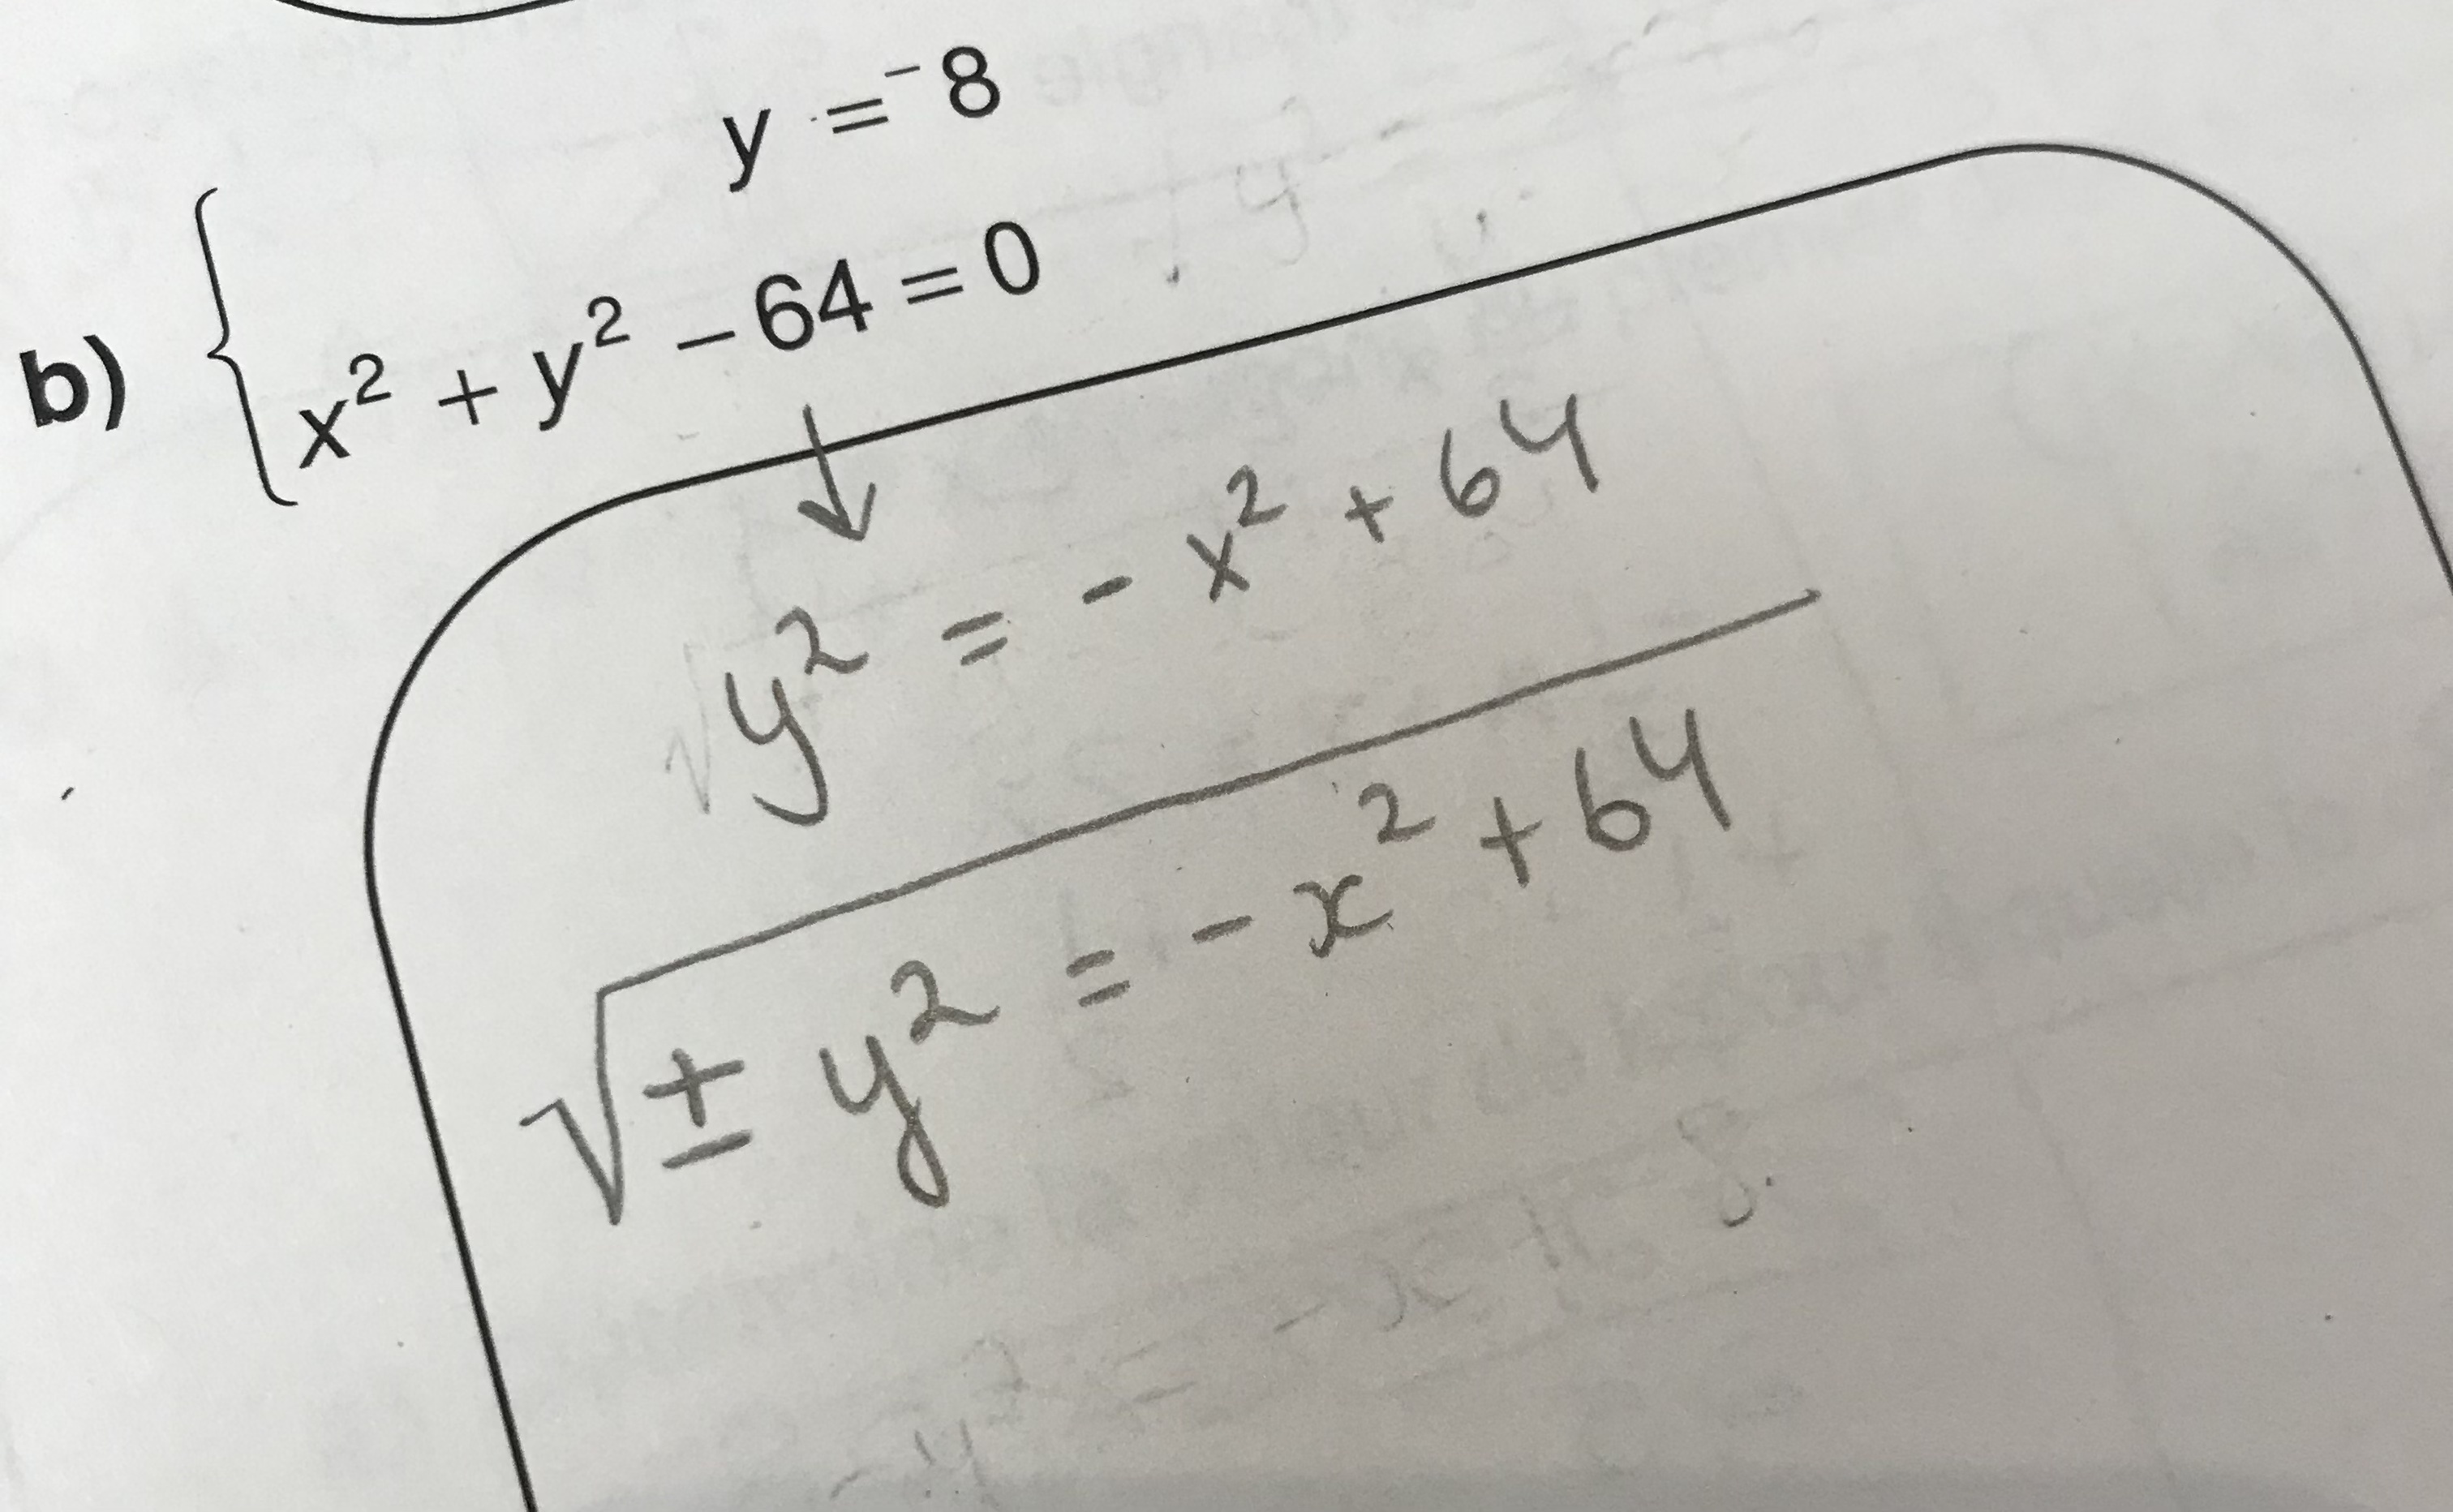 y = ⁻8
b) { x² + y² − 64 = 0
↓
y² = - x² + 64
√(± y² = - x² + 64)